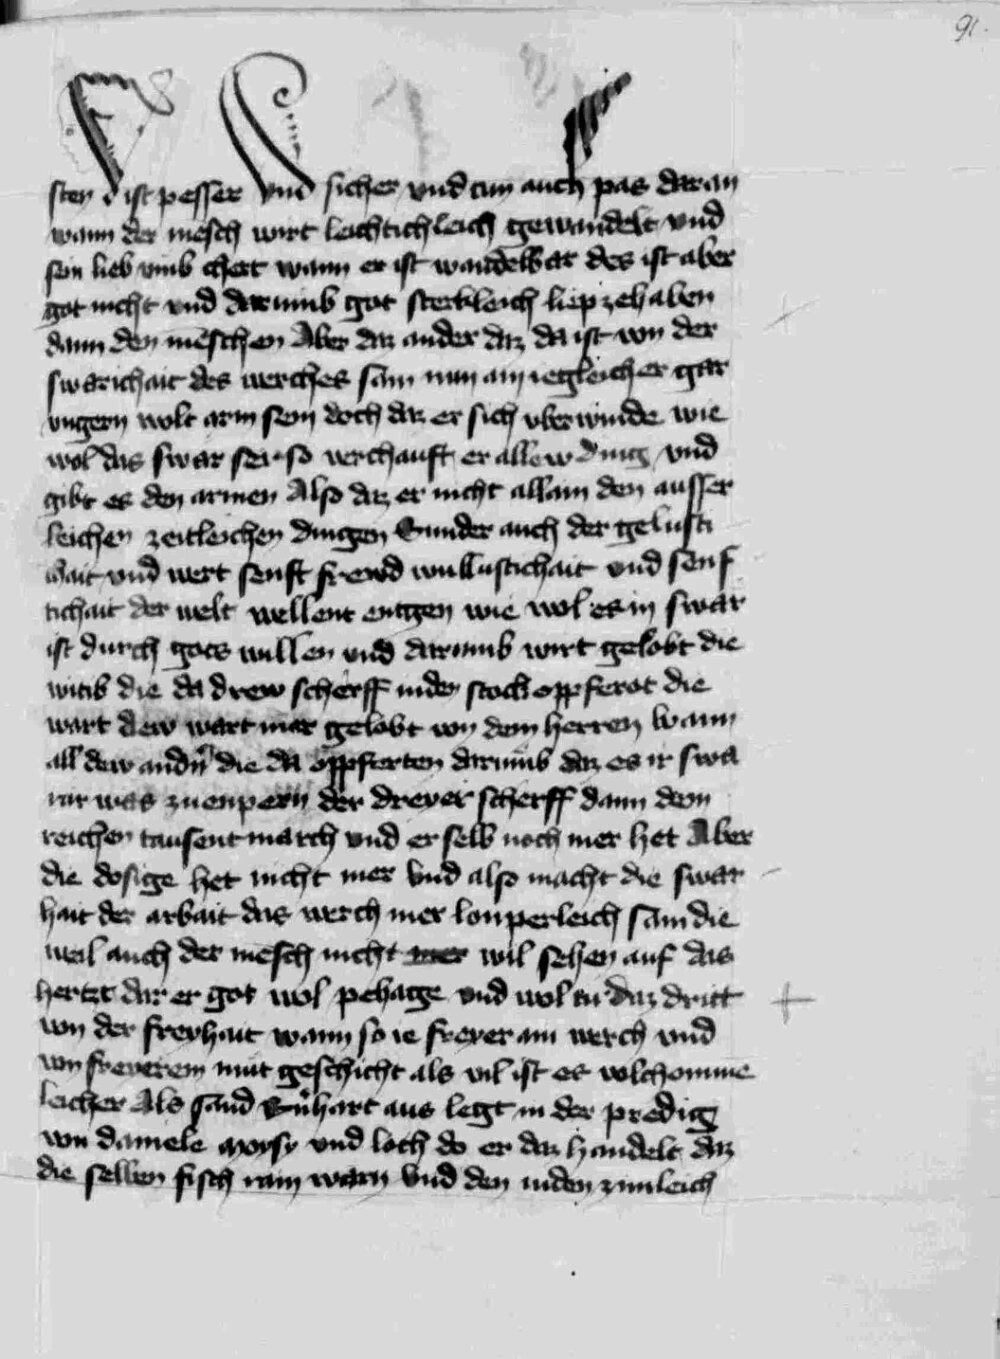 91.
sten d ist pesser vnd sicher vnd tun auch pas daran
wann der mēsch wirt leichtichleich gewandelt vnd
sein lieb vmb chert wann er ist wandelbar des ist aber
got nicht vnd darumb got sterkleich liep zehaben
dann den mēschen Aber daz ander daz da ist von der
swarichait des werches sam nun ain iegleicher gar
vngern wolt arm sein doch daz er sich vberwinde wie
wol das swar sei so verchauft er allew ding vnd
gibt es den armen Also daz er nicht allain den ausser
leichen zeitleichen dingen Sunder auch der gelusti
chait vnd wert senft frewd wullustichait vnd senf
tichait der welt wellent entgen wie wol es in swar
ist durch gots willen vnd darumb wirt gelobt die
witib die da drew scherff in den stock opferot die
wart dew wart mer gelobt von dem herren wann
all dew andn̄ die da oppferten darumb daz es ir swa
rar was zu enpern der dreyer scherff dann dem
reichen tausent march vnd er selb noch mer het Aber
die dosige het nicht mer vnd also macht die swar
hait der arbait das werch mer lonperleich sam die
weil auch der mēsch nicht mer wil sehen auf das
hertzt dar er got wol pehage vnd wol tu daz dritt
von der freyhait wann so ie freyer ain werch vnd
von freyerem mut geschicht als vil ist es volchomme
leicher Als sand Bn̄hart aus legt in der predig
von daniele moysy vnd loth do er daz handelt daz
die selben fisch rain warn vnd den iuden zimleich